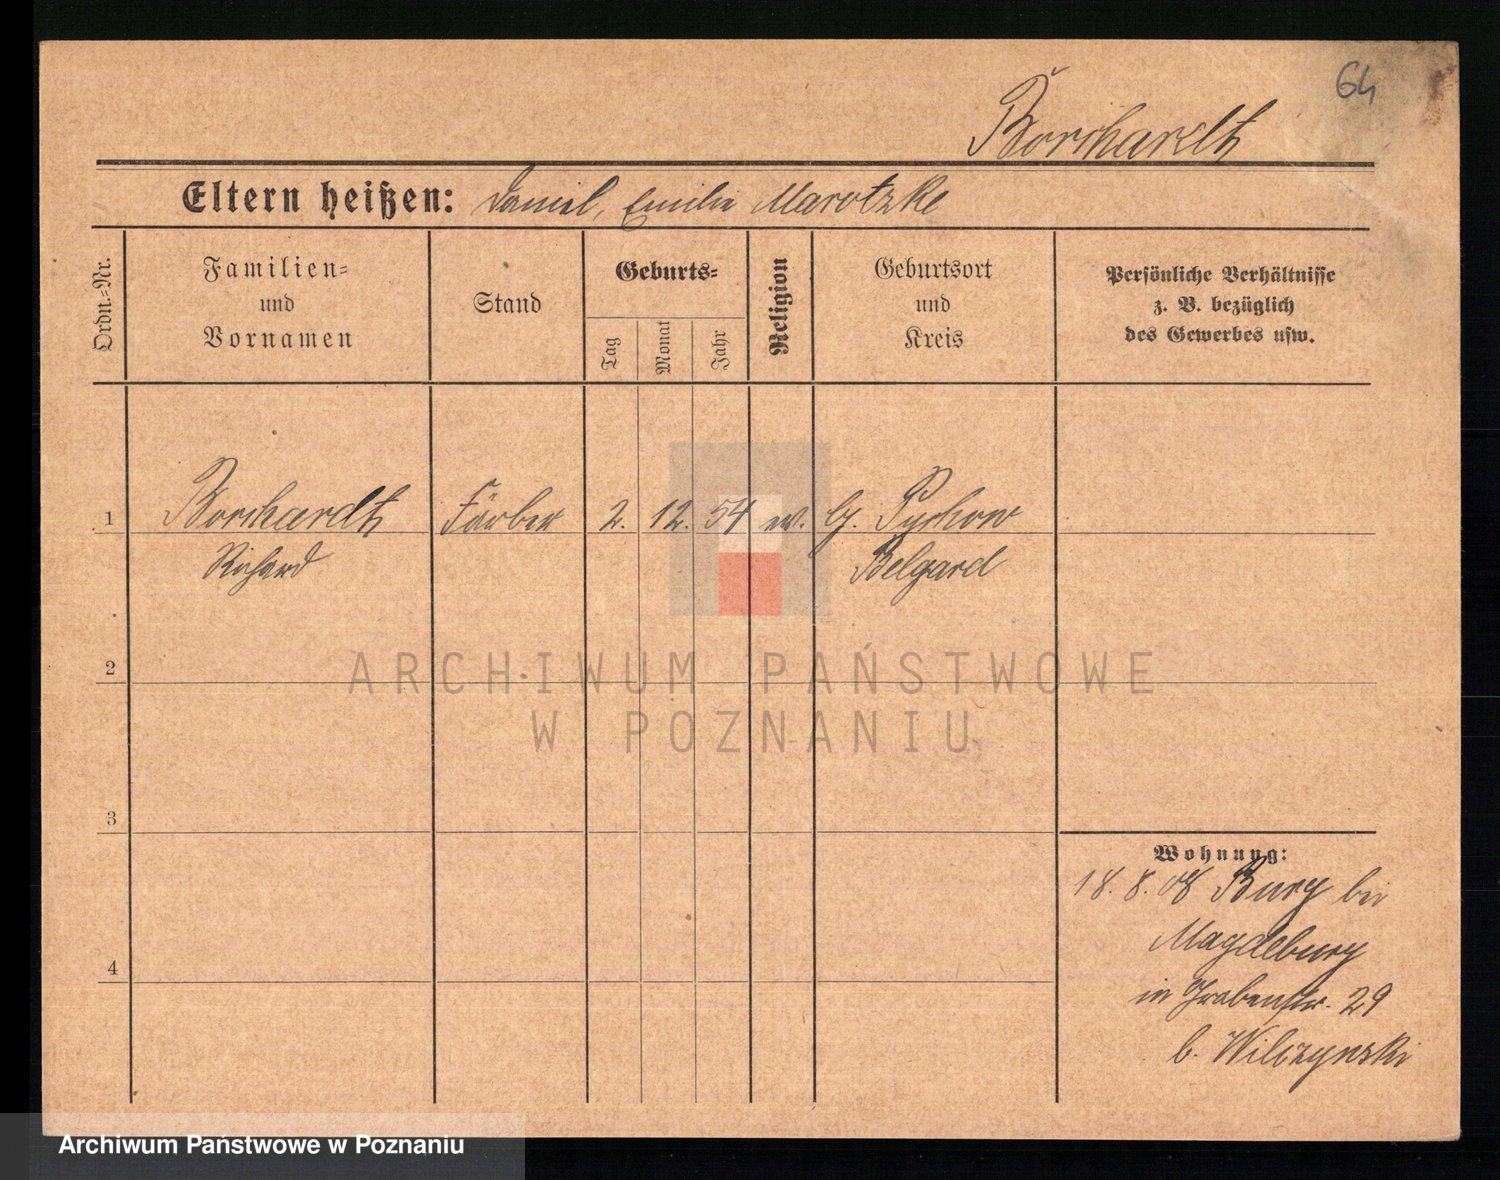 64
Borchardt
Eltern heißen: Daniel, Emilie Marotzke
Ordn.-Nr.
Familien-
und
Vornamen
Stand
Geburts-
Tag
Monat
Jahr
Religion
Geburtsort
und
Kreis
Persönliche Verhältnisse
z. B. bezüglich
des Gewerbes usw.
1 Borchardt Färber 2. 12. 54 ev.
Richard Belgard
2
3
4
Wohnung:
18. 8. 08 Burg bei
Magdeburg
in Grabenstr. 29
b. Wilczynski
ARCHIWUM PAŃSTWOWE
W POZNANIU
Archiwum Państwowe w Poznaniu